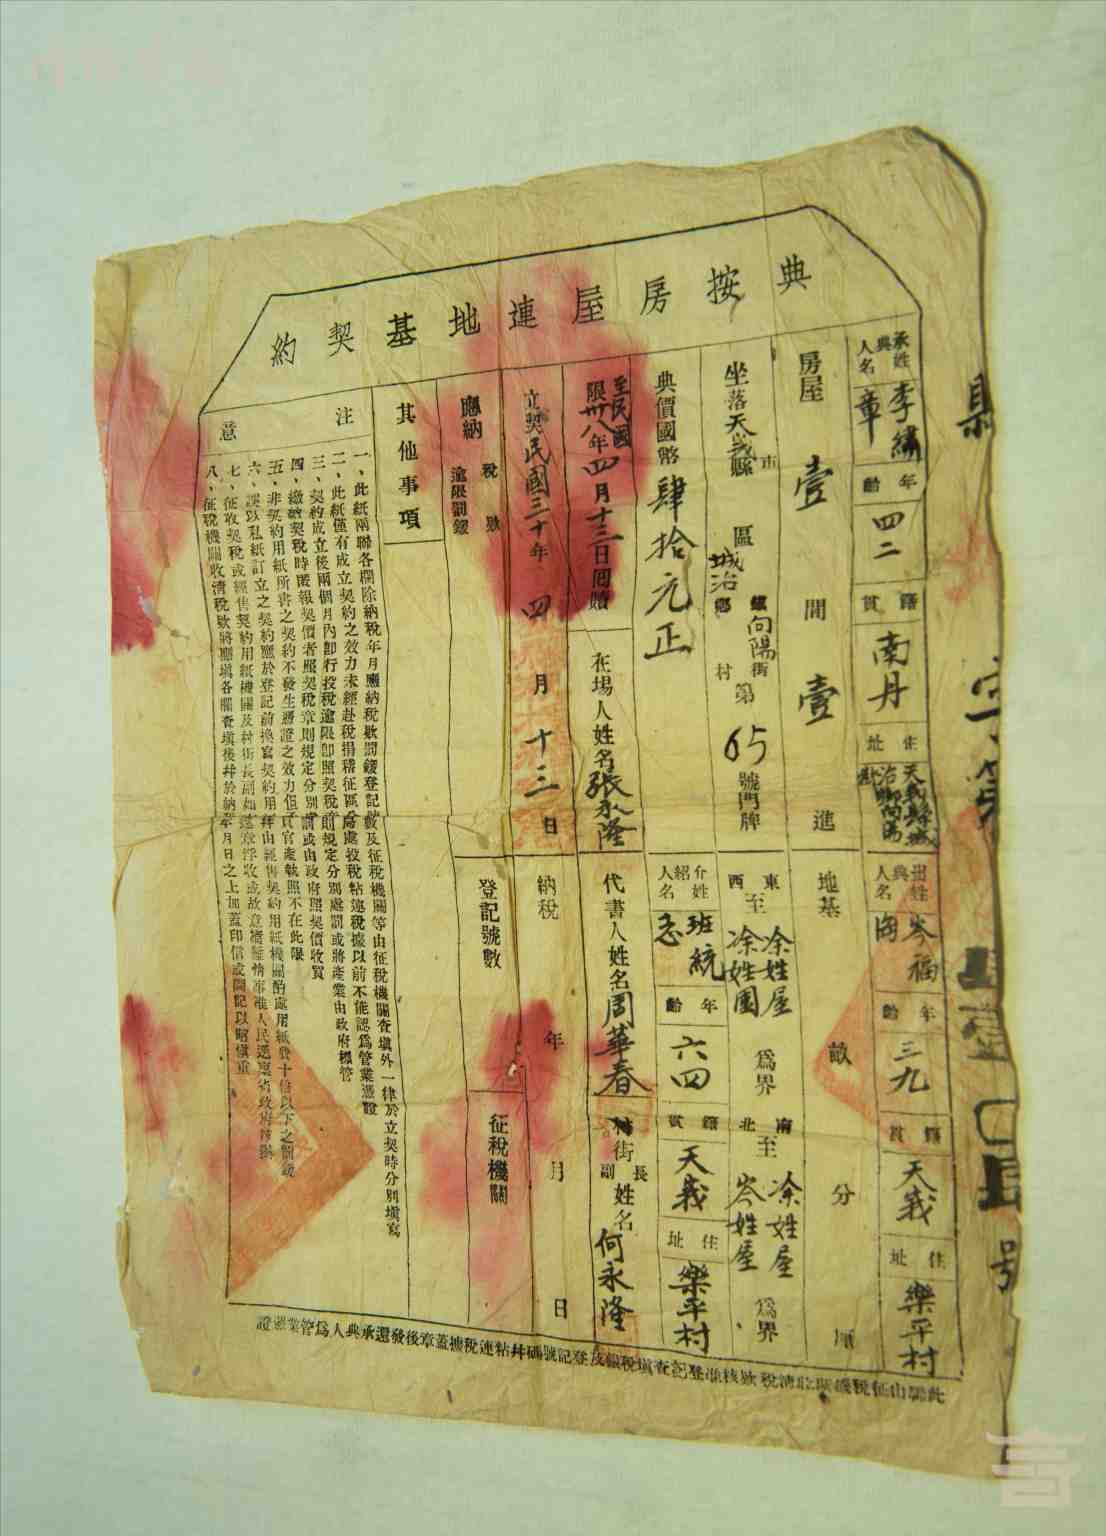 典按房屋連地基契約
承典人姓名 李繡章 年齡 四二 籍貫 南丹 住址 天峩縣城治鄉向陽街
出典人姓名 岑福海 年齡 三九 籍貫 天峩 住址 樂平村
房屋 壹 間 壹 進 地基 畝 分 厘
坐落 天峩縣市 區 城治鄉鎮 向陽街村 第 65 號門牌
東西至 凃姓屋 凃姓園 爲界 南北至 凃姓屋 岑姓屋 爲界
典價國幣 肆拾元正
介紹人姓名 班統忞 年齡 六四 籍貫 天峩 住址 樂平村
限至民國卅八年四月十三日回贖
在塲人姓名 張永隆 代書人姓名 周華春 村街長副姓名 何永隆
立契民國三十年 四 月 十三 日
納稅 年 月 日
應納 稅欵 逾限罰鍰
登記號數 征稅機關
其他事項
注意
一、此紙兩聯各欄除納稅年月應納稅欵罰鍰登記號數及征稅機關等由征稅機關查塡外一律於立契時分別塡寫
二、此紙僅有成立契約之效力未經赴稅捐稽征區分處投稅粘連稅據以前不能認爲管業憑證
三、契約成立後兩個月內卽行投稅逾限卽照契稅章則規定分別處罰或將產業由政府標管
四、繳納契稅時匿報契價者照契稅章則規定分別處罰或由政府照契價收買
五、非契約用紙所書之契約不發生憑證之效力但有官產執照不在此限
六、誤以私紙訂立之契約應於登記前換寫契約用紙由經售契約用紙機關酌處用紙費十倍以下之罰鍰
七、征收契稅或經售契約用紙機關及村街長副如違章浮收或故意
八、征稅機關收淸稅欵將應塡各欄查塡後幷於納稅年月日之上加蓋印信或圖記以昭愼重
此聯由征稅機關收淸稅欵核准登記查塡稅額及登記號碼幷粘連稅據蓋章後發還承典人爲管業憑證
縣
字第
號